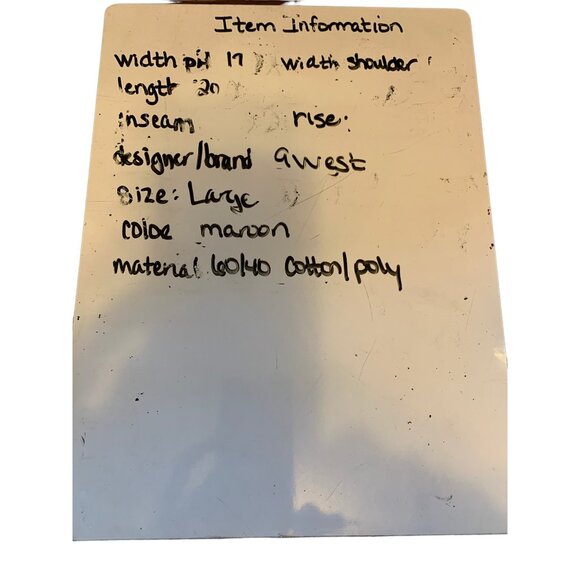 Item Information
width pit 17 width shoulder
length 20
inseam rise:
designer/brand 9 west
size: Large
color maroon
material 60/40 cotton/poly